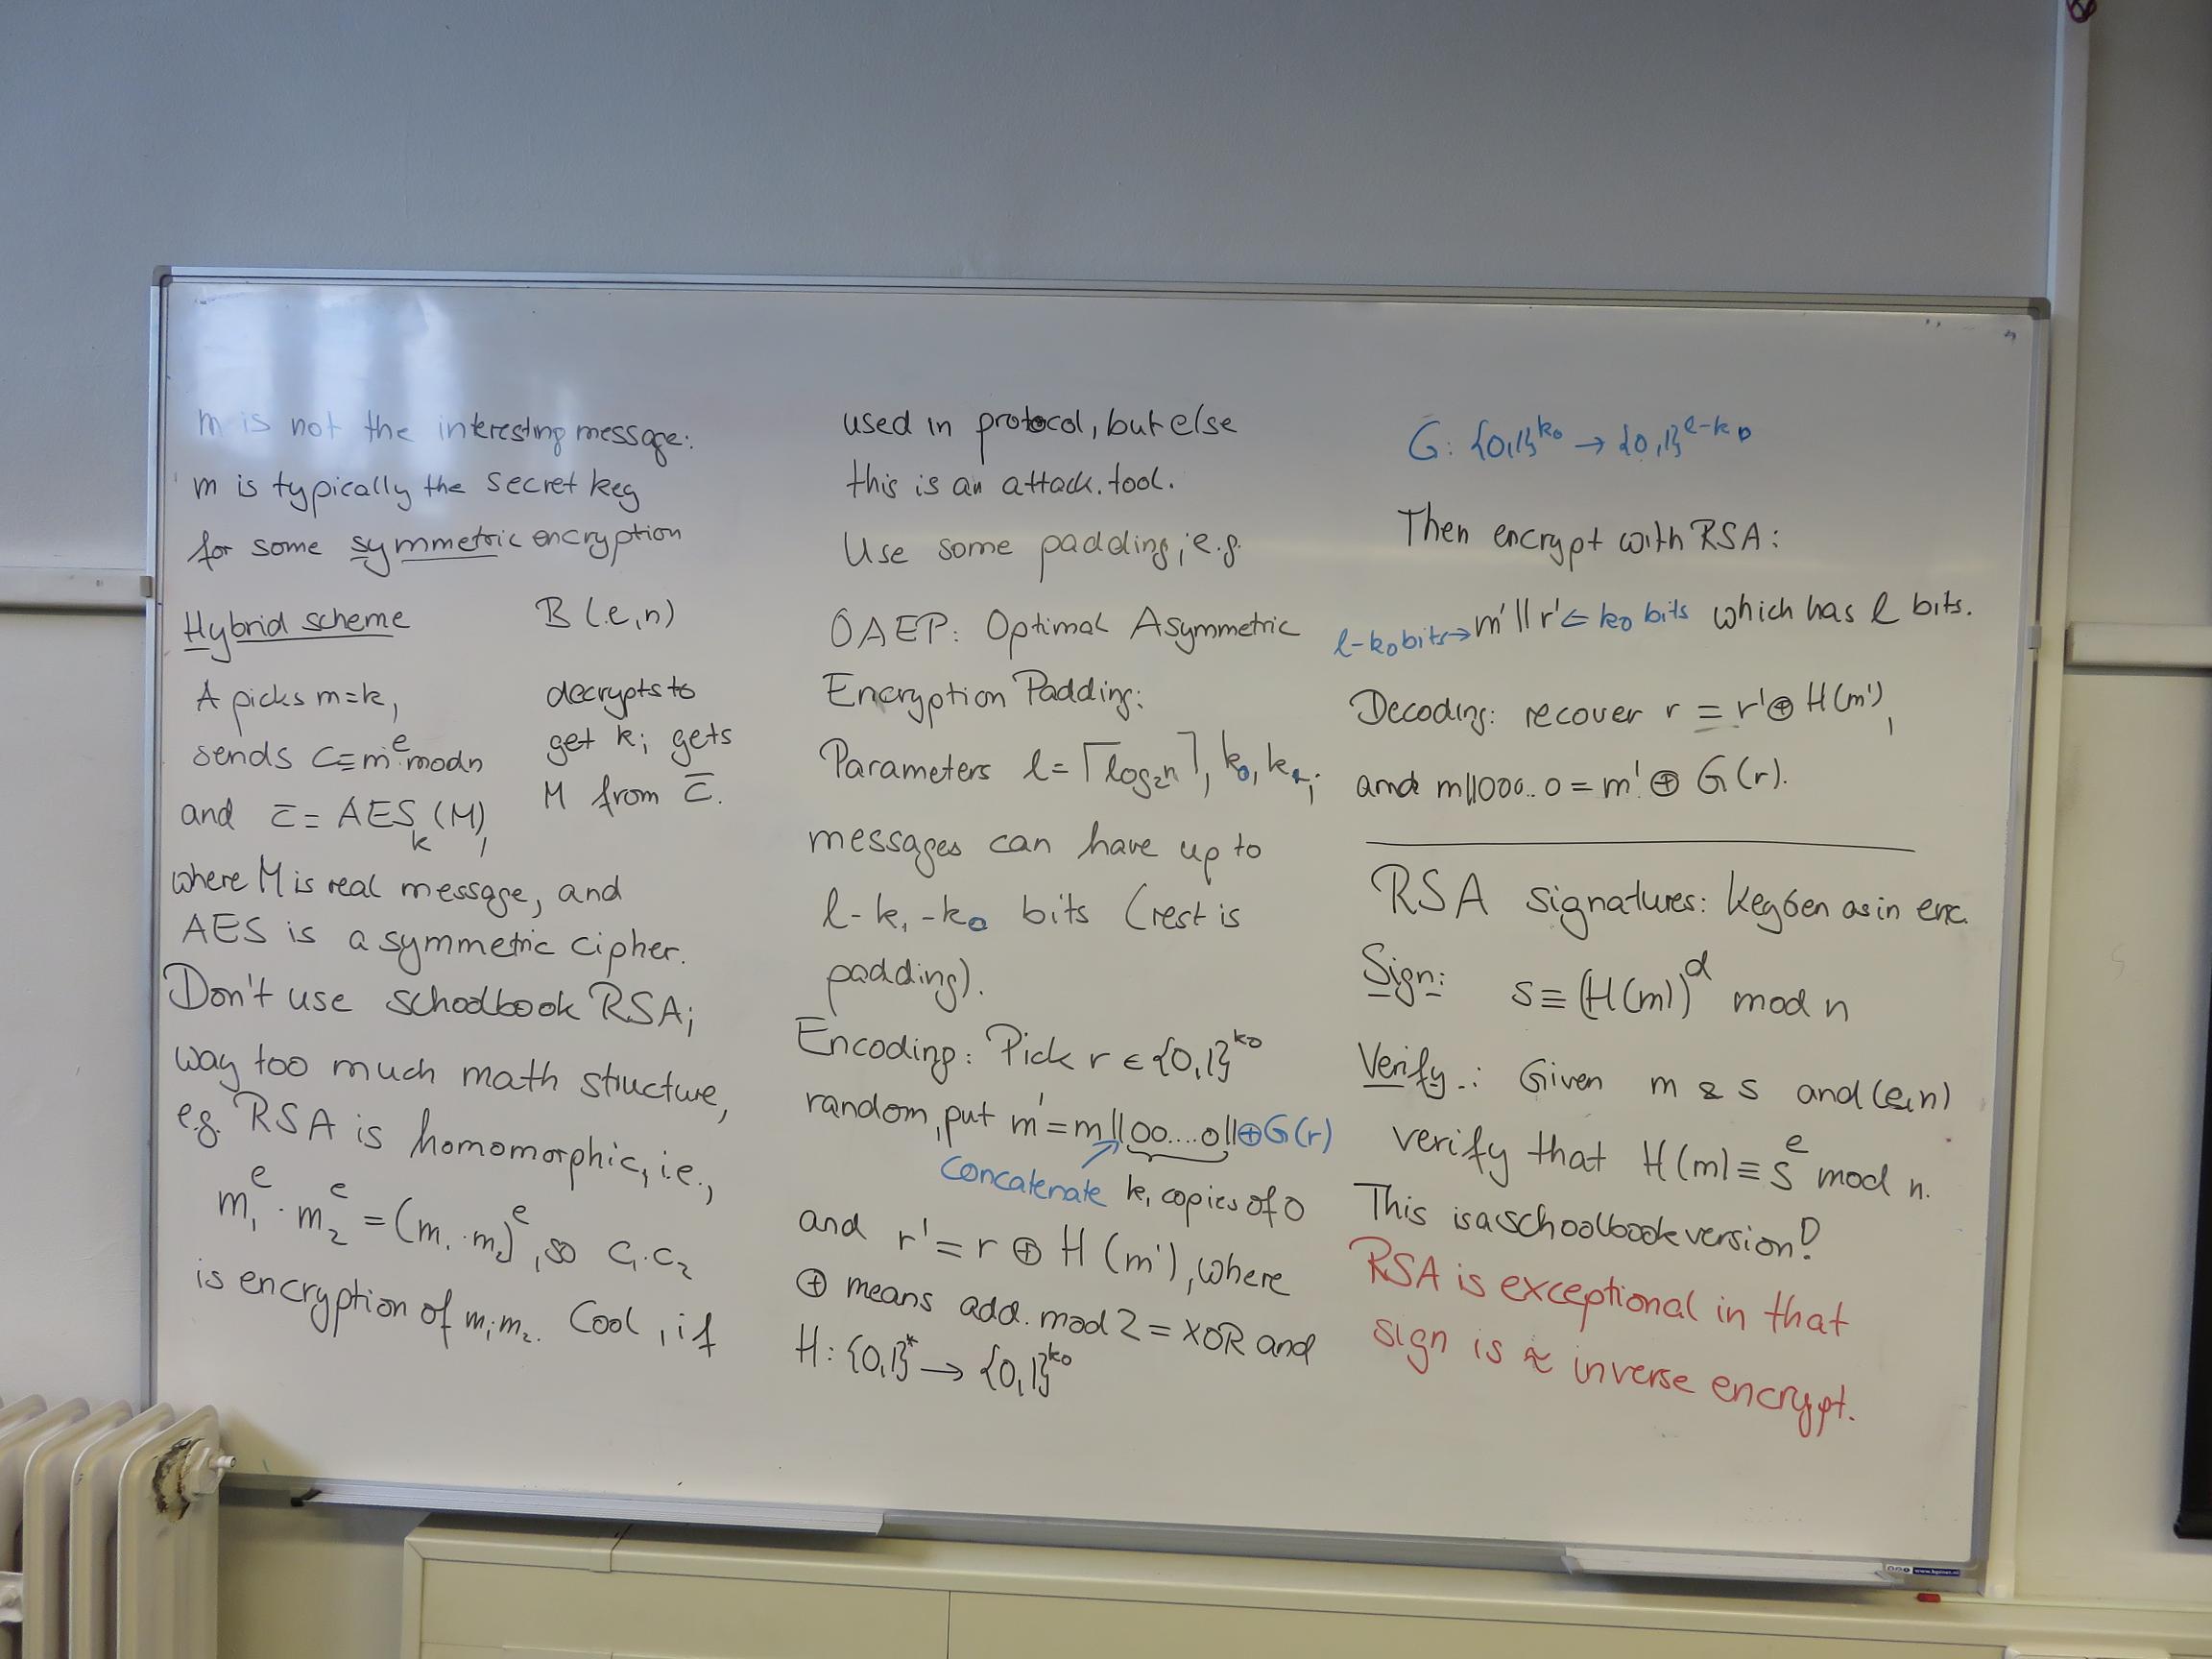 m is not the interesting message:
m is typically the secret key
for some symmetric encryption
Hybrid scheme B (e,n)
A picks m=k, decrypts to
sends c≡m^e mod n get k; gets
and c̅ = AES_k (M), M from c̅.
where M is real message, and
AES is a symmetric cipher.
Don't use schoolbook RSA;
way too much math structure,
e.g. RSA is homomorphic, i.e.,
m₁^e · m₂^e = (m₁·m₂)^e, so c₁·c₂
is encryption of m₁m₂. Cool, if
used in protocol, but else
this is an attack tool.
Use some padding, e.g.
OAEP: Optimal Asymmetric
Encryption Padding:
Parameters ℓ=⌈log₂n⌉, k₀, k₁;
messages can have up to
ℓ-k₁-k₀ bits (rest is
padding).
Encoding: Pick r ∈ {0,1}^k₀
random, put m'=m||00....0||⊕G(r)
concatenate k₁ copies of 0
and r'=r ⊕ H (m'), where
⊕ means add. mod 2 = XOR and
H: {0,1}^* → {0,1}^k₀
G: {0,1}^k₀ → {0,1}^ℓ-k₀
Then encrypt with RSA:
ℓ-k₀ bits → m'||r' ← k₀ bits which has ℓ bits.
Decoding: recover r = r'⊕ H(m'),
and m||000..0 = m' ⊕ G(r).
RSA signatures: KeyGen as in enc.
Sign: s≡ (H(m))^d mod n
Verify: Given m & s and (e,n)
verify that H(m)≡s^e mod n.
This is a schoolbook version!
RSA is exceptional in that
sign is ≈ inverse encrypt.